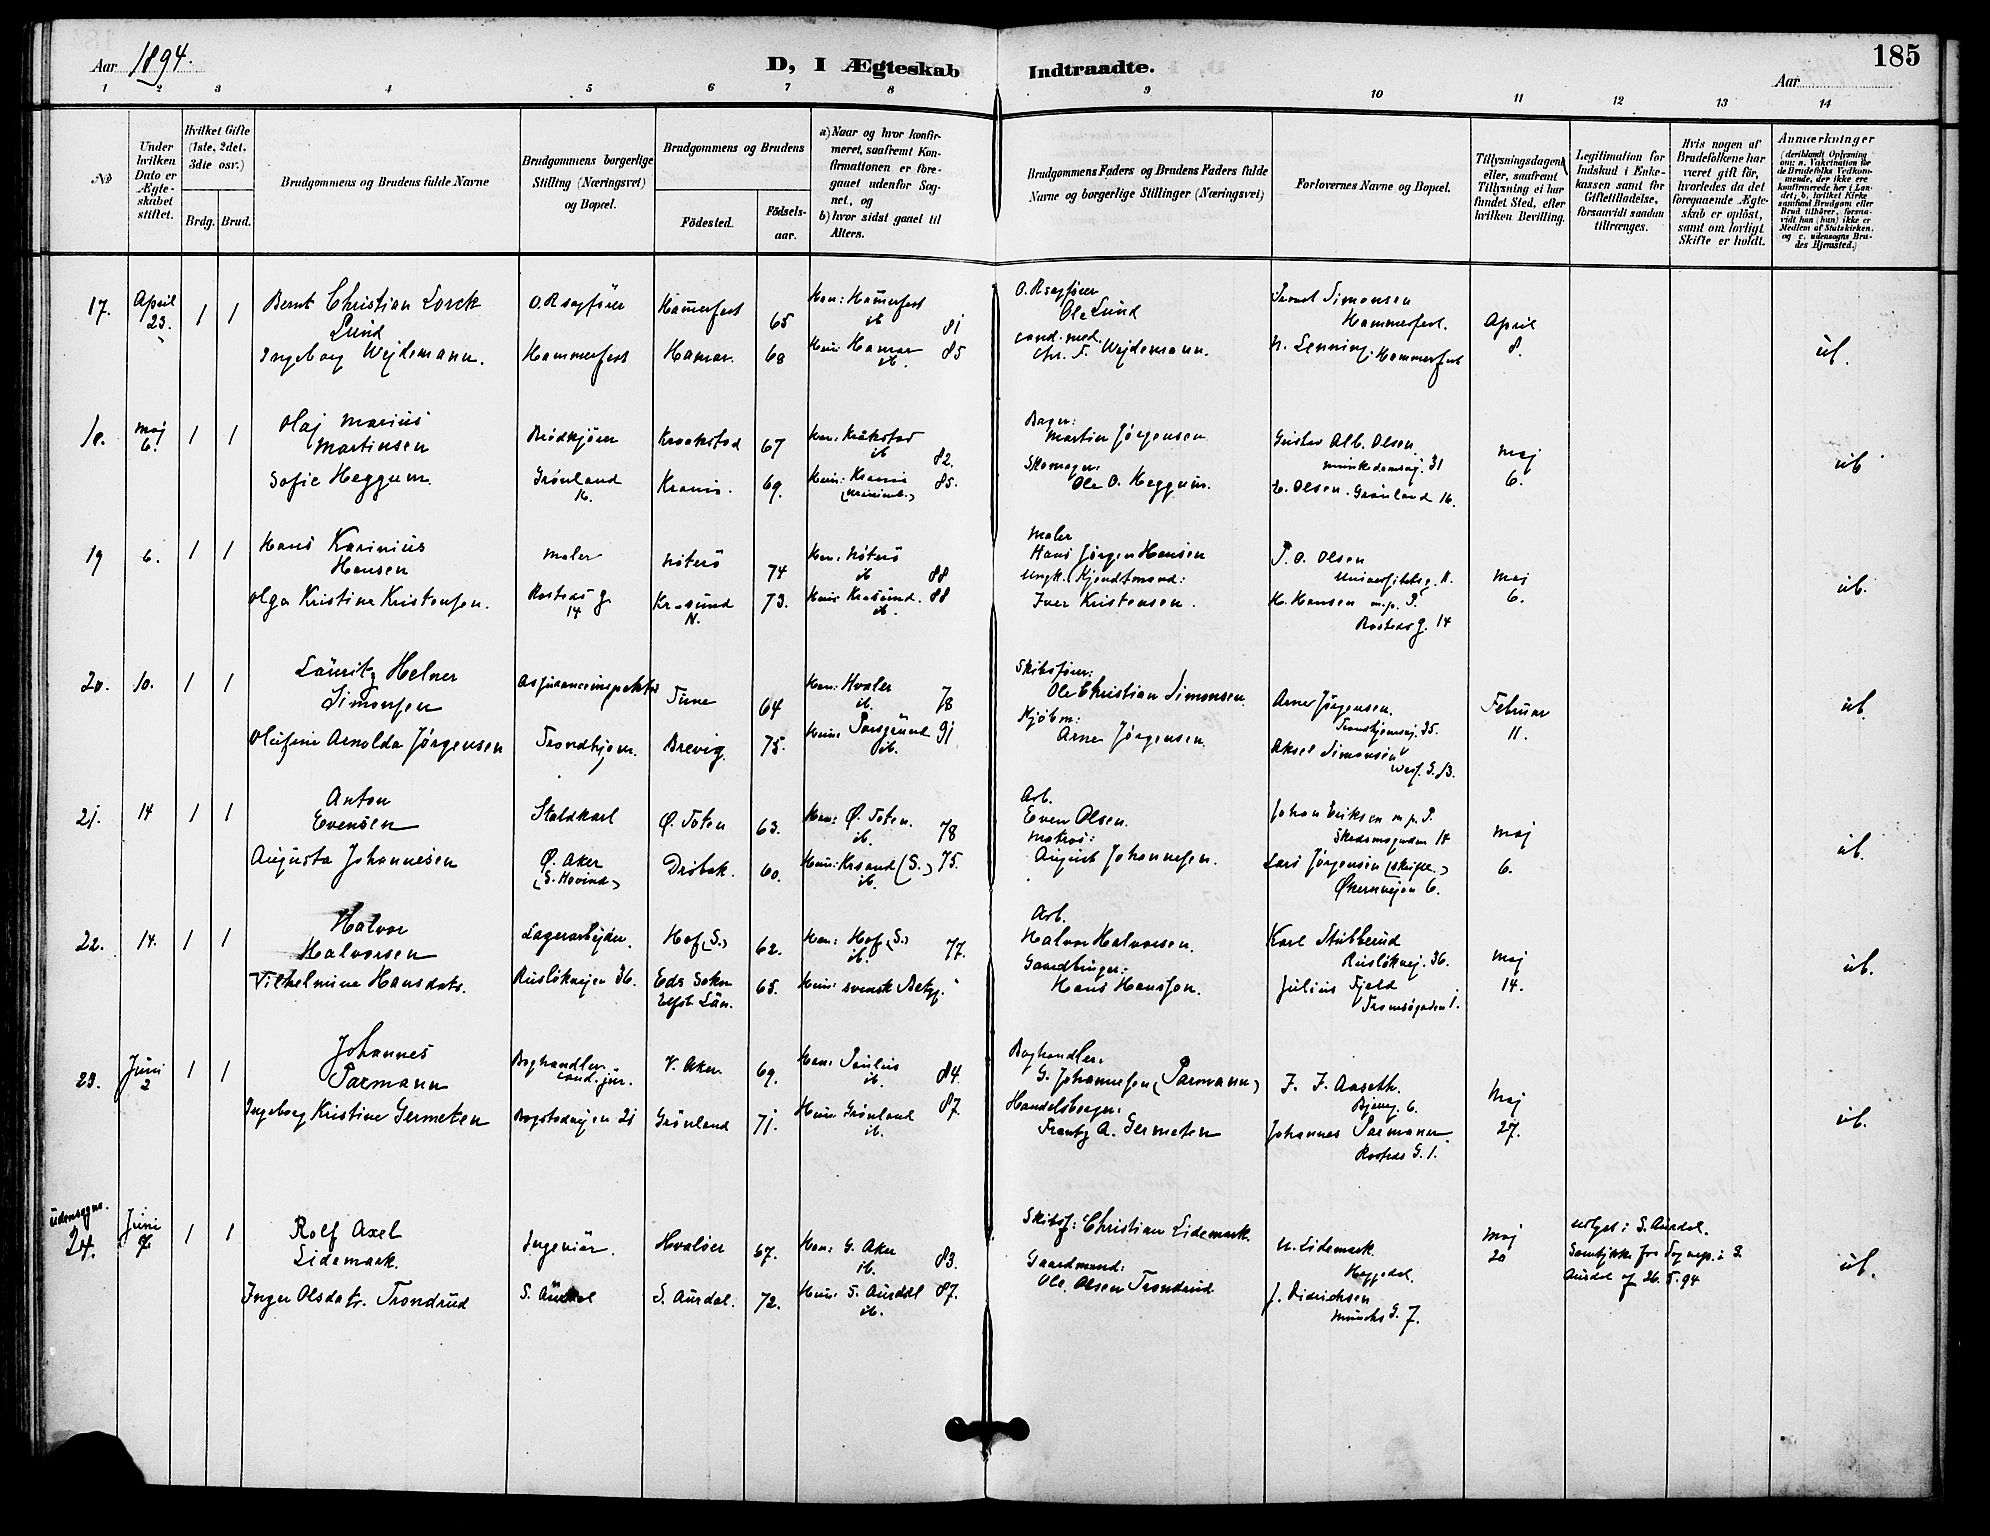 185
Aar 1894.
D, I Ægteskab Indtraadte.
Aar
1 2 3 4 5 6 7 8 9 10 11 12 13 14
No
Under hvilken Dato er Ægteskabet stiftet.
Hvilket Gifte (1ste, 2det, 3die osv.)
Brdg. Brud.
Brudgommens og Brudens fulde Navne
Brudgommens borgerlige Stilling (Næringsvei) og Bopæl.
Brudgommens og Brudens
Födested.
Födselsaar.
a) Naar og hvor konfirmeret, saafremt Konfirmationen er foregaaet udenfor Sognet, og
b) hvor sidst gaaet til Alters.
Brudgommens Faders og Brudens Faders fulde Navne og borgerlige Stillinger (Næringsvei)
Forlovernes Navne og Bopæl.
Tillysningsdagen, eller, saafremt Tillysning ei har fundet Sted, efter hvilken Bevilling.
Legitimation for Indskud i Enkekassen samt for Giftetilladelse, forsaavidt saadan tiltrænges.
Hvis nogen af Brudefolkene har været gift før, hvorledes da det foregaaende Ægteskab er oplöst, samt om lovligt Skifte er holdt.
Anmærkninger
(deriblandt Oplysning om: a. Vakcination for de Brudefolks Vedkommende, der ikke ere konfirmerede her i Landet; b. hvilket Kirkesamfund Brudgom eller Brud tilhører, forsaavidt han (hun) ikke er Medlem af Statskirken, og c. udensogns Brudes Hjemsted.)
17. April 23. 1 1 Bernt Christian Lorck Lund O. Rsagfører Hammerfest 65 Han: Hammerfest ib 81 O. Rsagfører Ole Lund Simonsen Hammerfest. April 8.
Ingeborg Wejdemann. Hammerfest Hamar. 68 Hun: Hamar ib. 85 cand. med. Chr. F. Wejdemann. N. Lenning, Hammerfest ub.
18. Maj 6. 1 1 Olaf Marius Martinsen Brödkjører Kraakstad 67 Han: Kråkstad ib 82. Bager: Martin Jørgensen Gustav Alb. Olsen Munkedamsvj. 31 Maj 6. ub
Sofie Heggum Grønland 16. Krania. 69. Hun: Krania 85. Skomager: Ole O. Heggum. Olsen. Grønland 16.
19 6. 1 1 Hans Karinius Hansen Maler Nøterö 74 Han: Nøterö ib 88 Maler Hans Jørgen Hansen P. O. Olsen Universitetsg. 11. Maj 6. ub.
Olga Kristine Kristensen. Rosteds g. 14 Kr.sund N. 73. Hun: Kr.sund. ib. 88 Ungk. (Kjendtmand: Iver Kristensen. H. Hansen m.p. P. Rosteds g. 14
20. 10. 1 1 Lauritz Helner Simonsen Assuranceinspektør Tune 64 Han: Hvaler ib. 78 Skibsfører: Ole Christian Simonsen Arne Jørgensen. Trondhjemsvj. 35. Februar 11. ub.
Olufine Arnolda Jørgensen Trondhjem. Brevig. 75. Hun: Porsgrund ib. 91 Kjøbm: Arne Jørgensen Aksel Simonsen
21. 14 1 1 Anton Evensen Staldkarl Ø. Toten 63. Han: Ø. Toten. ib. 78 Arb. Even Olsen. Johan Eriksen m.p. P. Maj 6. ub.
Augusta Johannesen Ø. Aker (S. Hovind) Dröbak. 60. Hun: Krsand (S.) ib. 75. Matros: August Johannesen. Lars Jørgensen Økernvejen 6.
22. 14. 1 1 Halvor Halvorsen Lagerarbejder. Hof (S.) 62. Han: Hof (S.) ib. 77. Arb. Halvor Halvorsen. Karl Stubberud Rusløkvej. 36. Maj 14. ub.
Vilhelmine Hansdatr. Rusløkvejen 36. Eds Sokn Elfsb. Län. 65. Hun: svensk Betyg. Gaardbruger: Hans Hansson. Julius Fjeld Tromsögaden 1.
23. Juni 2 1 1 Johannes Parmann Boghandler cand. jur. V. Aker 69. Han: Paulus ib. 84. Boghandler. G. Johannesen (Parmann) J. J. Aaseth. 6. Maj 27. ub.
Ingeborg Kristine Germeten Bogstadvejen 21 Grønland 71. Hun: Grønland ib. 87. Handelsborger: Frantz A. Germeten Johannes Parmann. Rosteds G. 1.
Udensogns. 24. Juni 7. 1 1 Rolf Axel Lidemark. Ingeniør. Hvaløer 67. Han: G. Aker ib. 83. Skibsf: Christian Lidemark. U. Lidemark. Heggedal. Maj 20 Udlyst i S. Aurdal.
Samtykke fra Sognep. i S. Aurdal af 26. 5. 94 ub.
Inger Olsdatr. Trondrud S. Aurdal S. Aurdal. 72. Hun: S. Aurdal ib. 87. Gaardmand: Ole Olsen Trondrud J. Didrichsen Munchs G. 7.